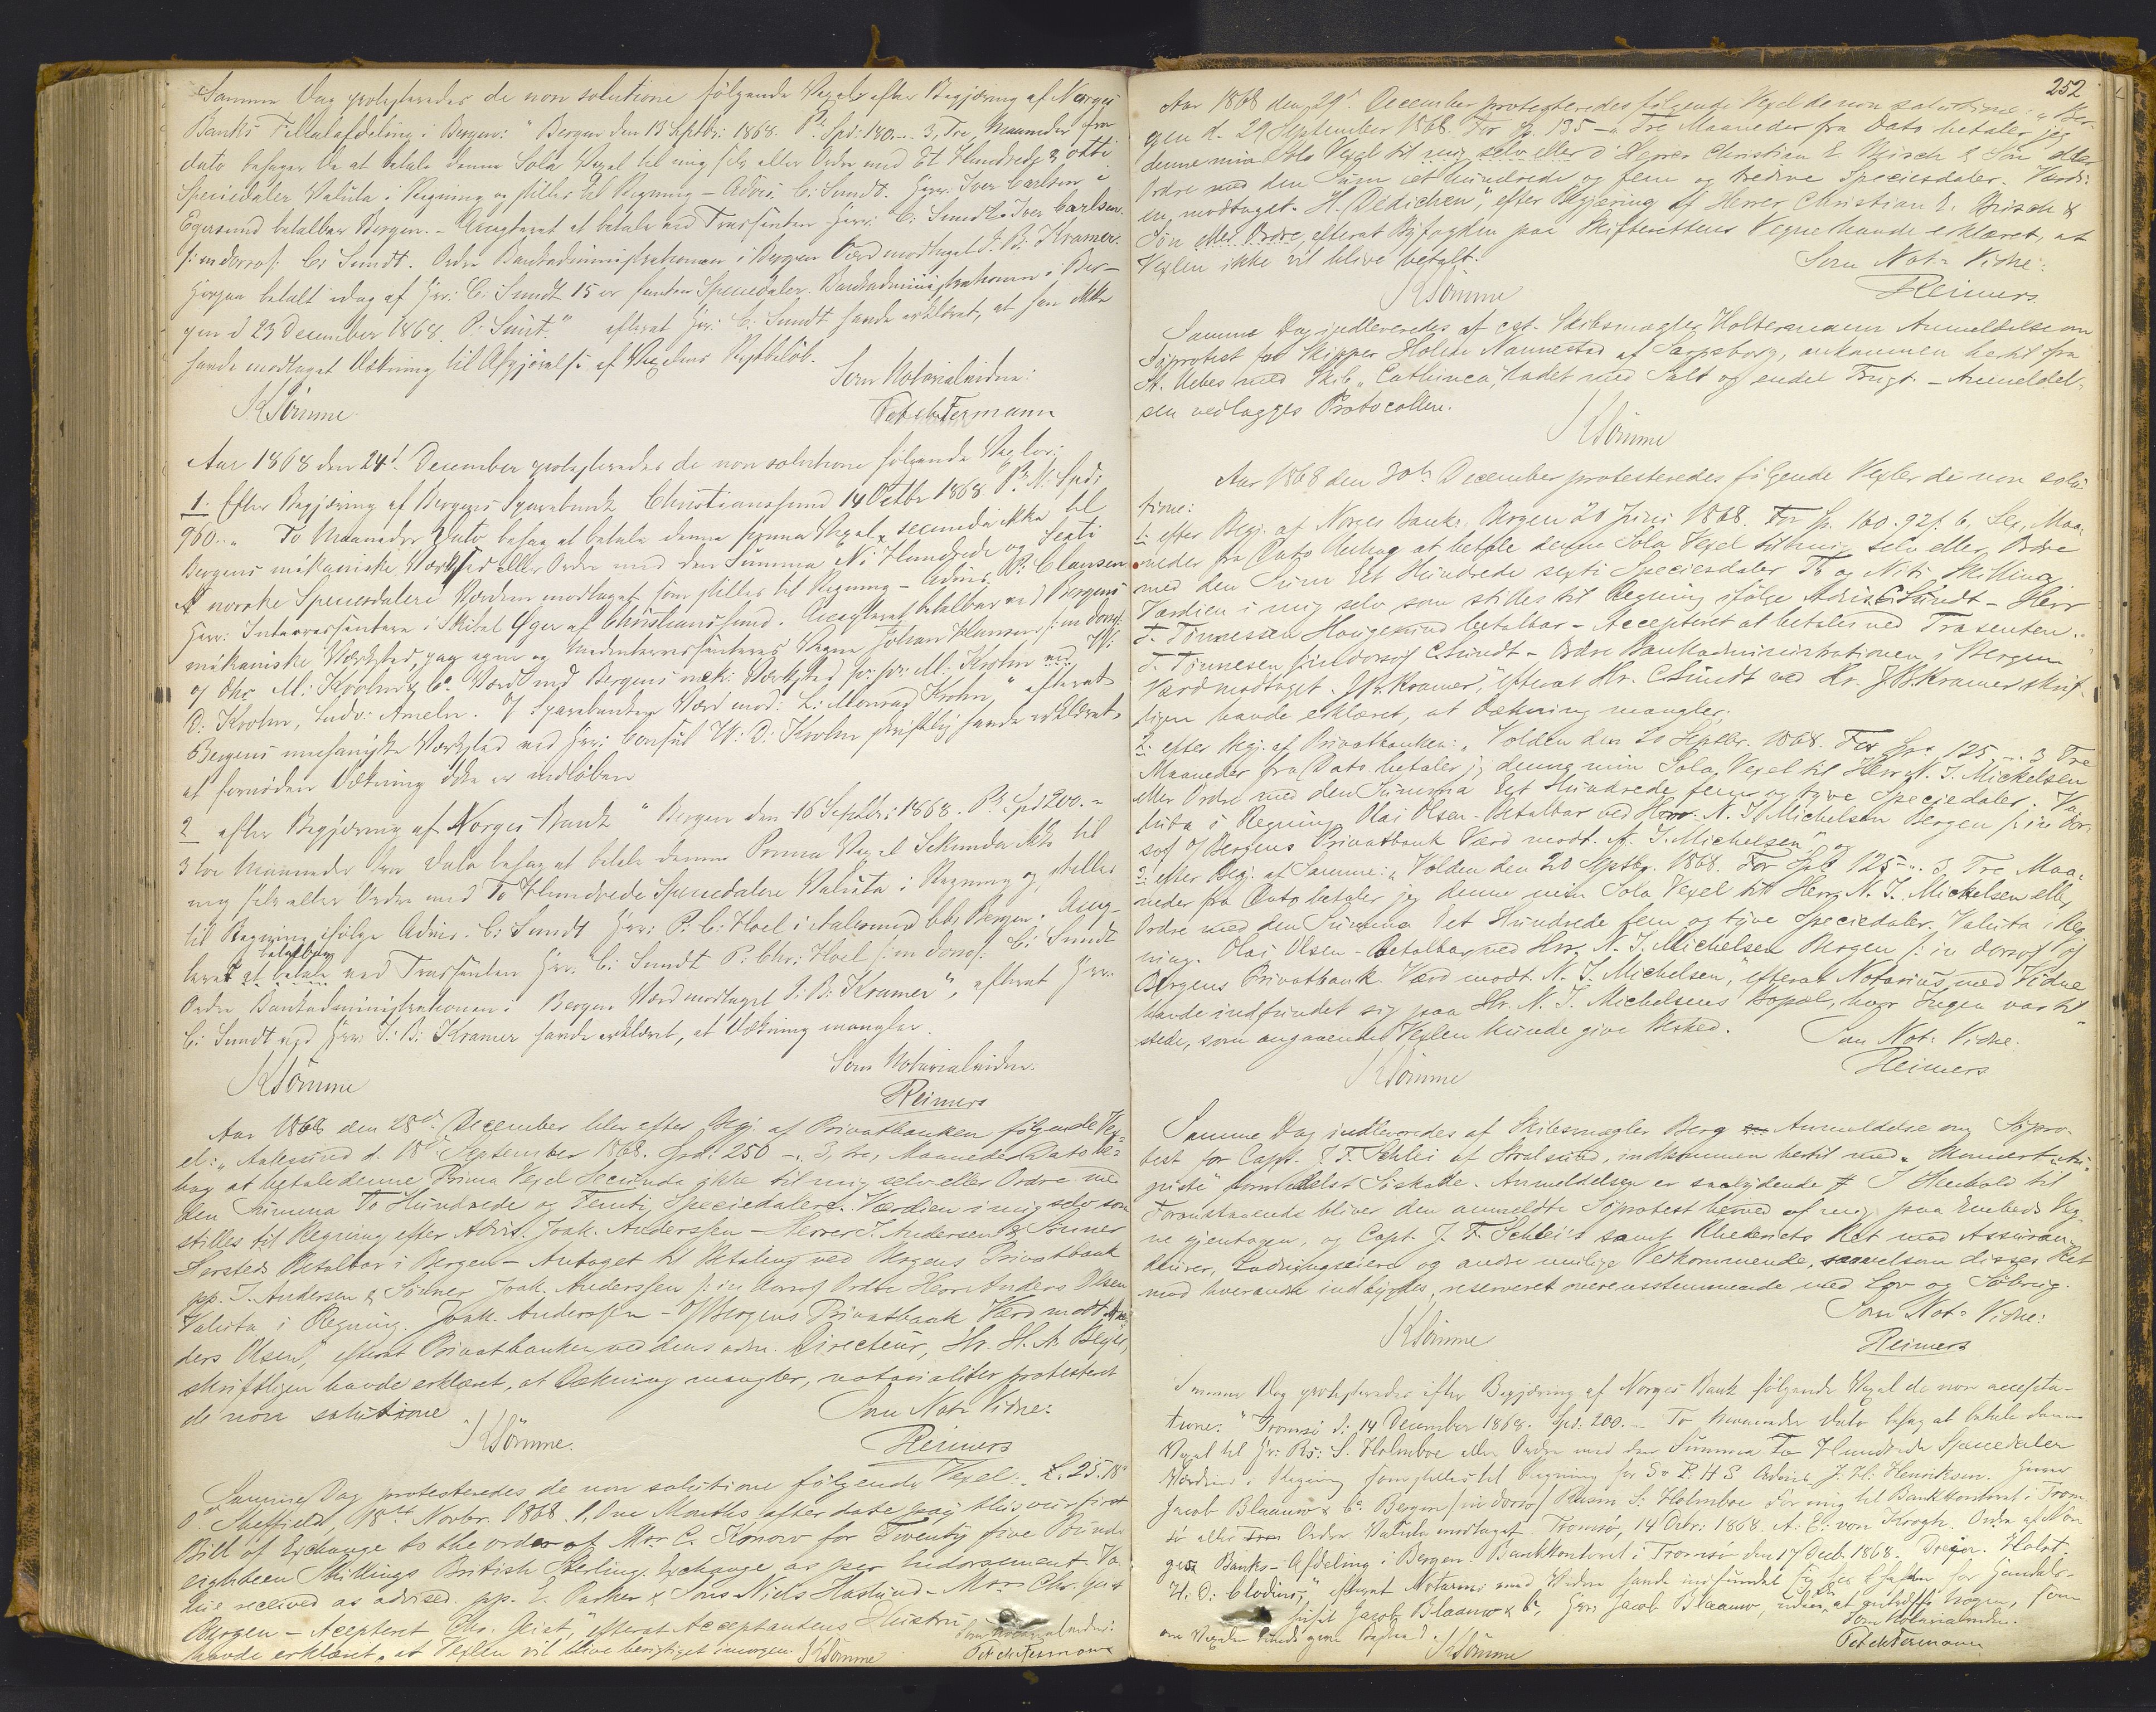 Samme Dag protesteredes de non solutione følgende Vexel efter Begjæring af Norges
Banks Filialafdeling i Bergen: "Bergen den 13 Septbr: 1868. Pr. Spd: 180.. 3, Tre, Maaneder fra
dato behager De at betale denne Sola Vexel til mig selv eller Ordre med Et Hundrede & otti
Speciedaler Valuta i Regning og stilles til Regning – Advis. C: Sundt. Herr: Iver Carlsen
Egersund betalbar Bergen. – Accepteret at betale ved Trassenten Herr: C: Sundt. Iver Carlsen.
/: in dorso /: C: Sundt. Ordre Bankadministrationen i Bergen Værd modtaget J. B: Kramer.
Herpaa betalt idag af Hr: C: Sundt 15 er femten Speciedaler. Bankadministrationen i Ber-
gen d 23 December 1868. P. Sunt." efterat Hr: C: Sundt havde erklæret, at han ikke
havde modtaget Dækning til Afgjørelse af Vexelens Restbeløb.
Som Notarialvidne:
KSömme
Pet ch Fermann
Aar 1868 den 24d. December protesteredes de non solutione følgende Vexler:
1. Efter Begjæring af Bergens Sparebank Christianssund 14 Octbr 1868 Pr. N: Spd:
960.. To Maaneder Dato behag at betale denne prima Vexel, secunda ikke til
Bergens mekaniske Værksted eller Ordre med den Summa Ni Hundrede og Sexti
norske Speciesdalere Værdien modtaget som stilles til Regning – Advis. P: Clausen
Herr: Interessentere i Skibet Øger af Christianssund. Accepteret betalbar ved Bergens
mekaniske Værksted, paa egne og Medinteressenteres Vegne Johan Hansen /: in dorso /:
O/ Hrr M: Krohn & Co. Værd med Bergens mek: Værksted pr: pr: M: Krohn ved W:
D: Krohn, Ludv: Ameln. O/ Sparebanken Værd mod: L: Monrad Krohn," efterat
Bergens mechaniske Værksted ved Hr: Consul W: D: Krohn skriftlig havde erklæret
at fornøden Dækning ikke er indløben
2 efter Begjæring af Norges Bank "Bergen den 16 Septbr: 1868. Pr. Spd 200.-
3 tre Maaneder fra Dato behag at betale denne Prima Vexel Sekunda ikke til
mig selv eller Ordre med To Hundrede Speciedalere Valuta i Regning og stilles
til Regning ifølge Advis. C: Sundt Hr: P. C: Hoel i Aalesund bb. Bergen. Accep-
betalbar
teret at betale ved Trassenten Hr: C: Sundt P: Chr: Hoel /: in dorso /: C: Sundt
Ordre Bankadministrationen i Bergen Værd modtaget J: B: Kramer", efterat Hr:
C: Sundt ved Hr: J: B: Kramer havde erklæret, at Dækning mangler.
Som Notarialvidne:
KSömme
Reimers
Aar 1868 den 28d. December blev efter Begj. af Privatbanken følgende Vex-
el: "Aalesund d. 18d September 1868. Spd: 250 –. 3, tre, Maaneder Dato be-
hag at betale denne Prima Vexel Secunda ikke til mig selv eller Ordre med
den Summa To Hundrede og Femti Speciedalere. Værdien i mig selv som
stilles til Regning efter Advis. Joak. Anderssen – Herrer J. Andersen & Sönner
Hersted betalbar i Bergen – Antaget til Betaling ved Bergens Privatbank
pp. J. Andersen & Sönner Joak. Anderssen /: in dorso / Ordre Herr Anders Olsen
Valuta i Regning. Joak. Anderssen – O/ Bergens Privatbank Værd modt. An-
ders Olsen", efterat Privatbanken ved dens adm. Directeur, Hr. H. A. Beyer,
skriftligen havde erklæret, at Dækning mangler, notarialiter protesteret
de non solutione
Som Not: Vidne:
KSömme.
Reimers
Samme Dag protesteredes de non solutione følgende Vexel: "£. 25. 18
Sheffield, 18th Novbr. 1868. 1, One Months after date pay this our first
Bill of Exchange to the order of Mr. C. Konow for Twenty five Pounds
eighteen Shillings British Sterling. Exchange as per Indorsement. Va-
lue received as advised. pp. E. Parker & Sons Niels Haslund – Mr. Chr. Geist
Bergen – Accepteret Chr. Geist", efterat Acceptantens Hustru
havde erklæret, at Vexlen vil blive berigtiget imorgen. KSömme
Som Notarialvidne:
Pet ch Fermann
252
Aar 1868 den 29d. December protesteredes følgende Vexel de non solutione: "Ber-
gen d. 29 September 1868. For Sp. 135 – Tre Maaneder fra Dato betaler jeg
denne min Sola Vexel til mig selv eller O' Herrer Christian E. Irisch & Sön eller
Ordre med den Sum et hundrede og fem og tredive Speciesdaler. Værdi-
en modtaget. H. Dedichen", efter Begjæring af Herrer Christian E. Irisch &
Sön eller Ordre, efterat Byfogden paa Skifterettens Vegne havde erklæret, at
Vexlen ikke vil blive betalt.
Som Not: Vidne:
KSömme
Reimers
Samme Dag indleveredes af cst. Skibsmægler Holtermann Anmeldelse om
Söprotest for Skipper Holm Nannestad af Sarpsborg, ankommen hertil fra
St. Uebes med Skib "Cathinca", ladet med Salt og endel Frugt. – Anmeldel-
sen vedlægges Protocollen.
KSömme
Aar 1868 den 30te December protesteredes følgende Vexler de non solu-
tione:
1: efter Begj. af Norges Bank. Bergen 20 Juni 1868. For Sp. 160. 92/. 6, Sex, Maa-
neder fra Dato behag at betale denne Sola Vexel til mig selv eller Ordre
med den Sum Et Hundrede sexti Speciesdaler To og Niti Skilling
Værdien i mig selv som stilles til Regning ifølge Advis C Sundt – Herr
T. Tönnesen Haugesund betalbar – Accepteret at betales ved Trasenten..
T. Tönnesen /: in dorso / C Sundt – Ordre Bankadministrationen i Bergen
Værd modtaget. J. B. Kramer", efterat Hr. C Sundt ved Hr. J B Kramer skrift-
ligen havde erklæret, at Dækning mangler;
2: efter Begj. af Privatbanken: "Volden den 20 Septbr. 1868. For Spd 125 .. 3 Tre
Maaneder fra Dato betaler jeg denne min Sola Vexel til Herr N. J. Mickelsen
eller Ordre med den Summa Et Hundrede fem og tyve Speciedaler. Va-
luta i Regning Olai Olsen – Betalbar ved Herr. N. J Michelsen Bergen /: in dor-
so / O/ Bergens Privatbank Værd modt. N. J. Michelsen", og
3: efter Begj. af Samme: "Volden den 20 Septbr. 1868. For Spd 125 –.. 3 Tre Maa-
neder fra Dato betaler jeg denne min Sola Vexel til Herr N. J. Mickelsen eller
Ordre med den Summa Et Hundrede fem og tyve Speciedaler. Valuta i Reg-
ning. Olai Olsen – Betalbar ved Hr. N. J. Michelsen Bergen /: in dorso / O/
Bergens Privatbank. Værd modt. N. J. Michelsen", efterat Notarius med Vidne
havde indfundet sig paa Hr. N. J. Michelsens Bopæl, hvor Ingen var til-
stede, som angaaende Vexlen kunde give Besked.
Som Not: Vidne.
KSömme
Reimers
Samme Dag indleveredes af Skibsmægler Berg Anmeldelse om Söpro-
test for Capt. J. F. Schlei af Stralsund, indkommen hertil med Skonnert "Au-
guste" formedelst Söskade. Anmeldelsen er saalydende # I Henhold til
Foranstaaende bliver den anmeldte Söprotest herved af mig paa Embeds Veg-
ne gjentagen, og Capt. J. F. Schlei's samt Rhederiets Ret mod Assuran-
deurer, Ladningseiere og andre mulige Vedkommende, saavelsom disses Ret
mod hverandre indbyrdes, reserveret overensstemmende med Lov og Söbrug.
Som Not: Vidne:
KSömme
Reimers
Samme Dag protesteredes efter Begjæring af Norges Bank følgende Vexel de non accepta-
tione: "Tromsö d. 14 December 1868. Spd: 200.– To Maaneder Dato behag at betale denne
Vexel til Hr: Rs: S. Holmboe eller Ordre med den Summa To Hundrede Speciedaler
Værdien i Regning som stilles til Regning for S P. H S Advis J. H: Henriksen. Herrer
Jacob Blaauw & Co. Bergen / in dorso / Rasm S: Holmboe for mig til Bankkontoret i Trom-
sö eller Ordre Valuta modtaget. Tromsö, 14 Decbr: 1868. A: E: von Krogh. Ordre af Nor-
ges Banks-Afdeling i Bergen. Bankkontoret i Tromsö den 17 Decb. 1868. Dreyer. Holst.
H. O: Clodius," efterat Notarius med Vidne havde indfundet sig hos Chefen for Handels-
huset Jacob Blaauw & Co, Hr: Jacob Blaauw, uden at antræffe Nogen, som
om Vexelen kunde give Besked.
Som Notarialvidne.
KSömme
Pet ch Fermann